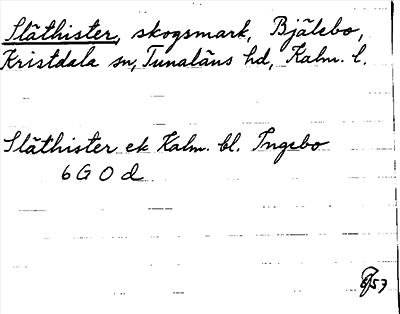 Släthister, skogsmark, Bjälebo,
Kristdala sn, Tunaläns hd, Kalm. l.
Släthister ek Kalm. bl. Ingebo
6 G O d